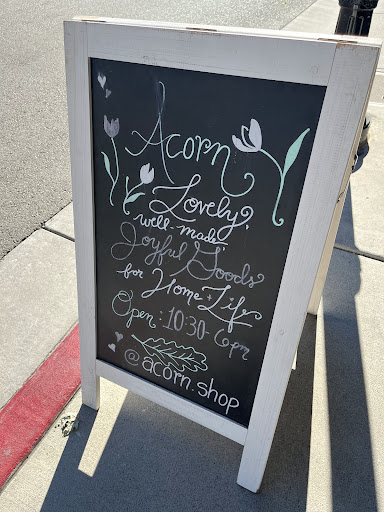 Acorn
Lovely,
well-made
Joyful Goods
for Home + Life
Open: 10:30-6pm
@acorn.shop